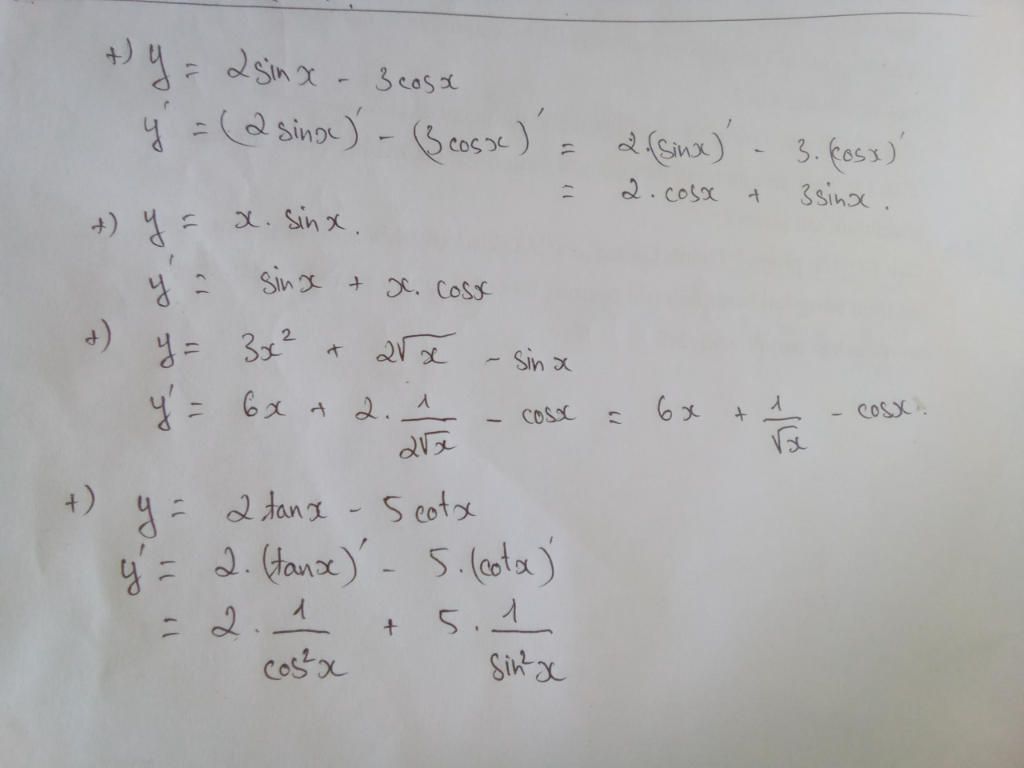 +) y = 2sinx - 3cosx
y' = (2sinx)' - (3cosx)' = 2.(sinx)' - 3.(cosx)'
= 2.cosx + 3sinx.
+) y = x.sinx.
y' = sinx + x.cosx
+) y = 3x² + 2√x - sinx
y' = 6x + 2.1/(2√x) - cosx = 6x + 1/√x - cosx.
+) y = 2tanx - 5cotx
y' = 2.(tanx)' - 5.(cotx)'
= 2.1/cos²x + 5.1/sin²x